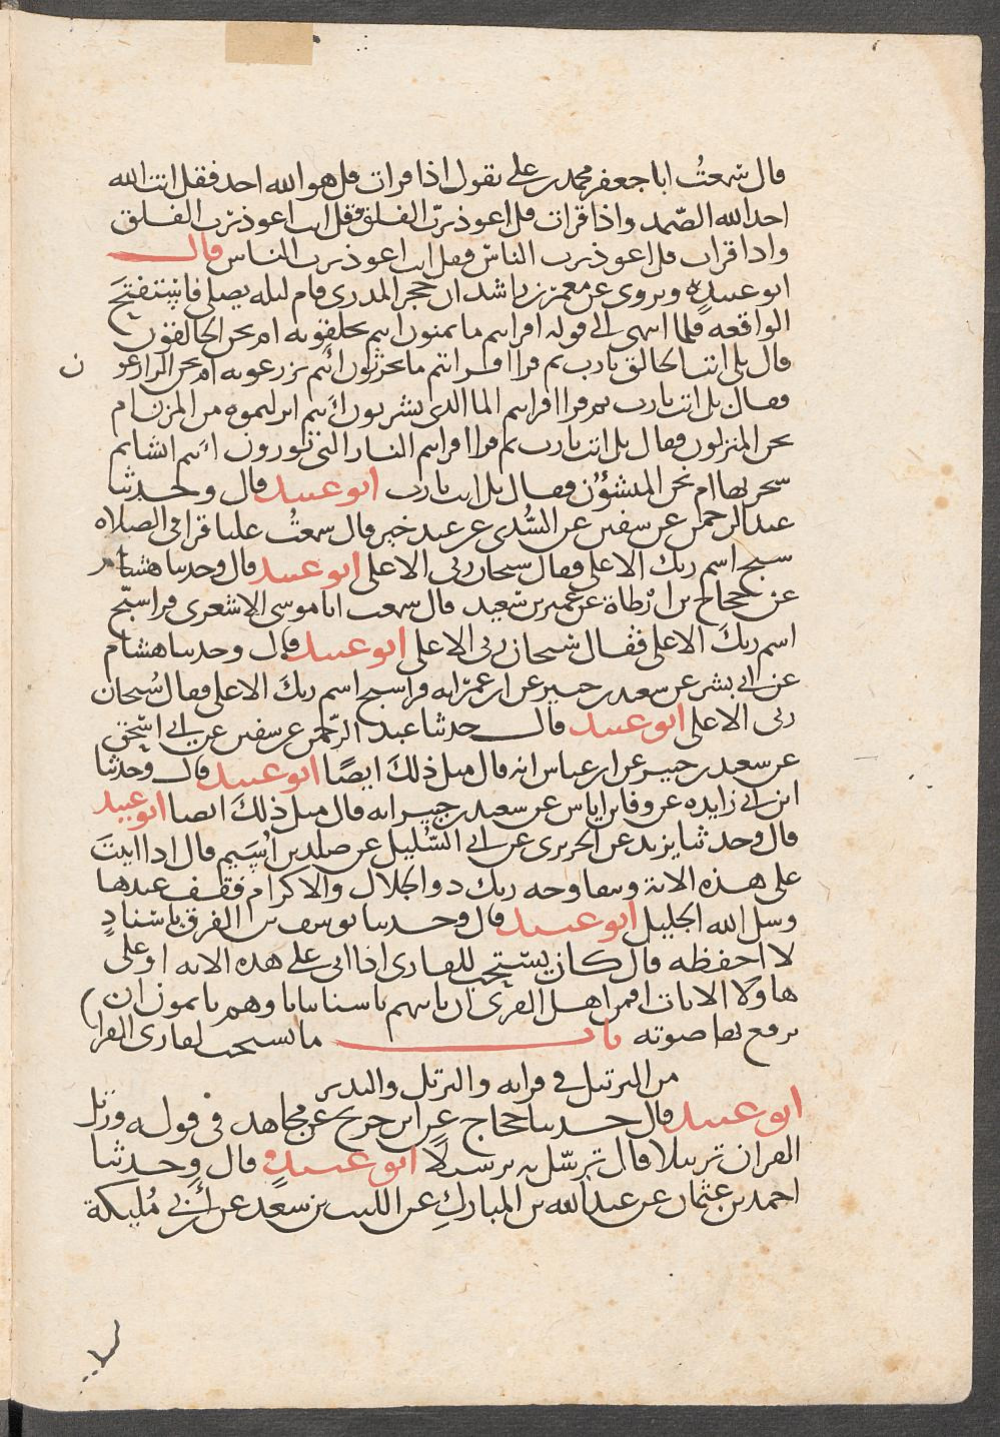 قال سَمعتُ ابا جعفر محمد بن علي يقول اذا قرات قل هو الله احد فقل انت الله
احد الله الصّمد واذا قرات قل اعوذ بربّ الفلق فقل انت اعوذ بربّ الفلق
واذا قرات قل اعوذ برب الناس فقل انت اعوذ برب الناس قال
ابو عبيدٍ ويروى عن معمر بن راشد ان حُجر المدرى قام ليله يصلى فاستفتح
الواقعه فلما انتهى الى قوله افرايتم ما تمنون اانتم تخلقونه ام نحن الخالقون
قال بل انت الخالق يا رب ثم قرا افرايتم ما تحرثون اانتم تزرعونه ام نحن الزارعو ن
فقال بل انت يا رب ثم قرا افرايتم الما الذى تشربون اانتم انزلتموه من المزن ام
نحن المنزلون فقال بل انت يا رب ثم قرا افرايتم النار التى تورون اانتم انشاتم
شجرتها ام نحن المنشؤن فقال بل انت يا رب ابو عبيد قال وحدثنا
عبد الرحمن عن سفين عن السُّدى عن عبد خير قال سمعتُ عليا قرا فى الصلاه
سبح اسم ربك الاعلى فقال سبحان ربى الاعلى ابو عبيد قال وحدثنا هشام
عن حجاج بن ارْطاة عن عُمير بن سَعيد قال سمعت ابا موسى الاشعرى قرا سبّح
اسم ربكَ الاعلى فقال سُبحان ربى الاعلى ابو عبيد قال وحدثنا هشام
عن ابى بشر عن سعيد بن جبير عن ابن عمر انه قرا سبح اسم ربكَ الاعلى فقال سُبحان
ربى الاعلى ابو عبيد قال حدثنا عبد الرّحمن عن سفين عن ابى اسحٰق
عن سعيد بن جبير عن ابن عباس انه قال مثل ذلكَ ايضًا ابو عبيد قال وحدثنا
ابن ابى زايده عن وفا بن اياس عن سعيد بن جبير انه قال مثل ذلكَ ايضا ابو عبيد
قال وحدثنا يزيد عن الجريرى عن ابى السَّليل عن صله بن اُشَيم قال اذا اتيتَ
على هذه الاية ويبقا وجه ربك ذو الجلال والاكرام فقف عندها
وسل الله الجليل ابو عبيد قال وحدثنا يوسف بن الغرق باسنادٍ
لا احفظه قال كان يستحب للقارى اذا اتى على هذه الايه او على
هاولا الايات افمن اهل القرى ان ياتيهم باسنا بياتا وهم نايمون ان
يرفع بها صوته باب ما يستحب لقارى القرا
من الترتيل فى قراته والترتل والتدبر
ابو عبيد قال حدثنا حجاج عن ابن جريج عن مجاهد فى قوله ورتل
القران ترتيلا قال ترسّل به ترسلًا ابو عبيدٍ قال وحدثنا
احمد بن عثمان عن عبد الله بن المباركِ عن الليث بن سعدٍ عن ابن أبى مُليكة